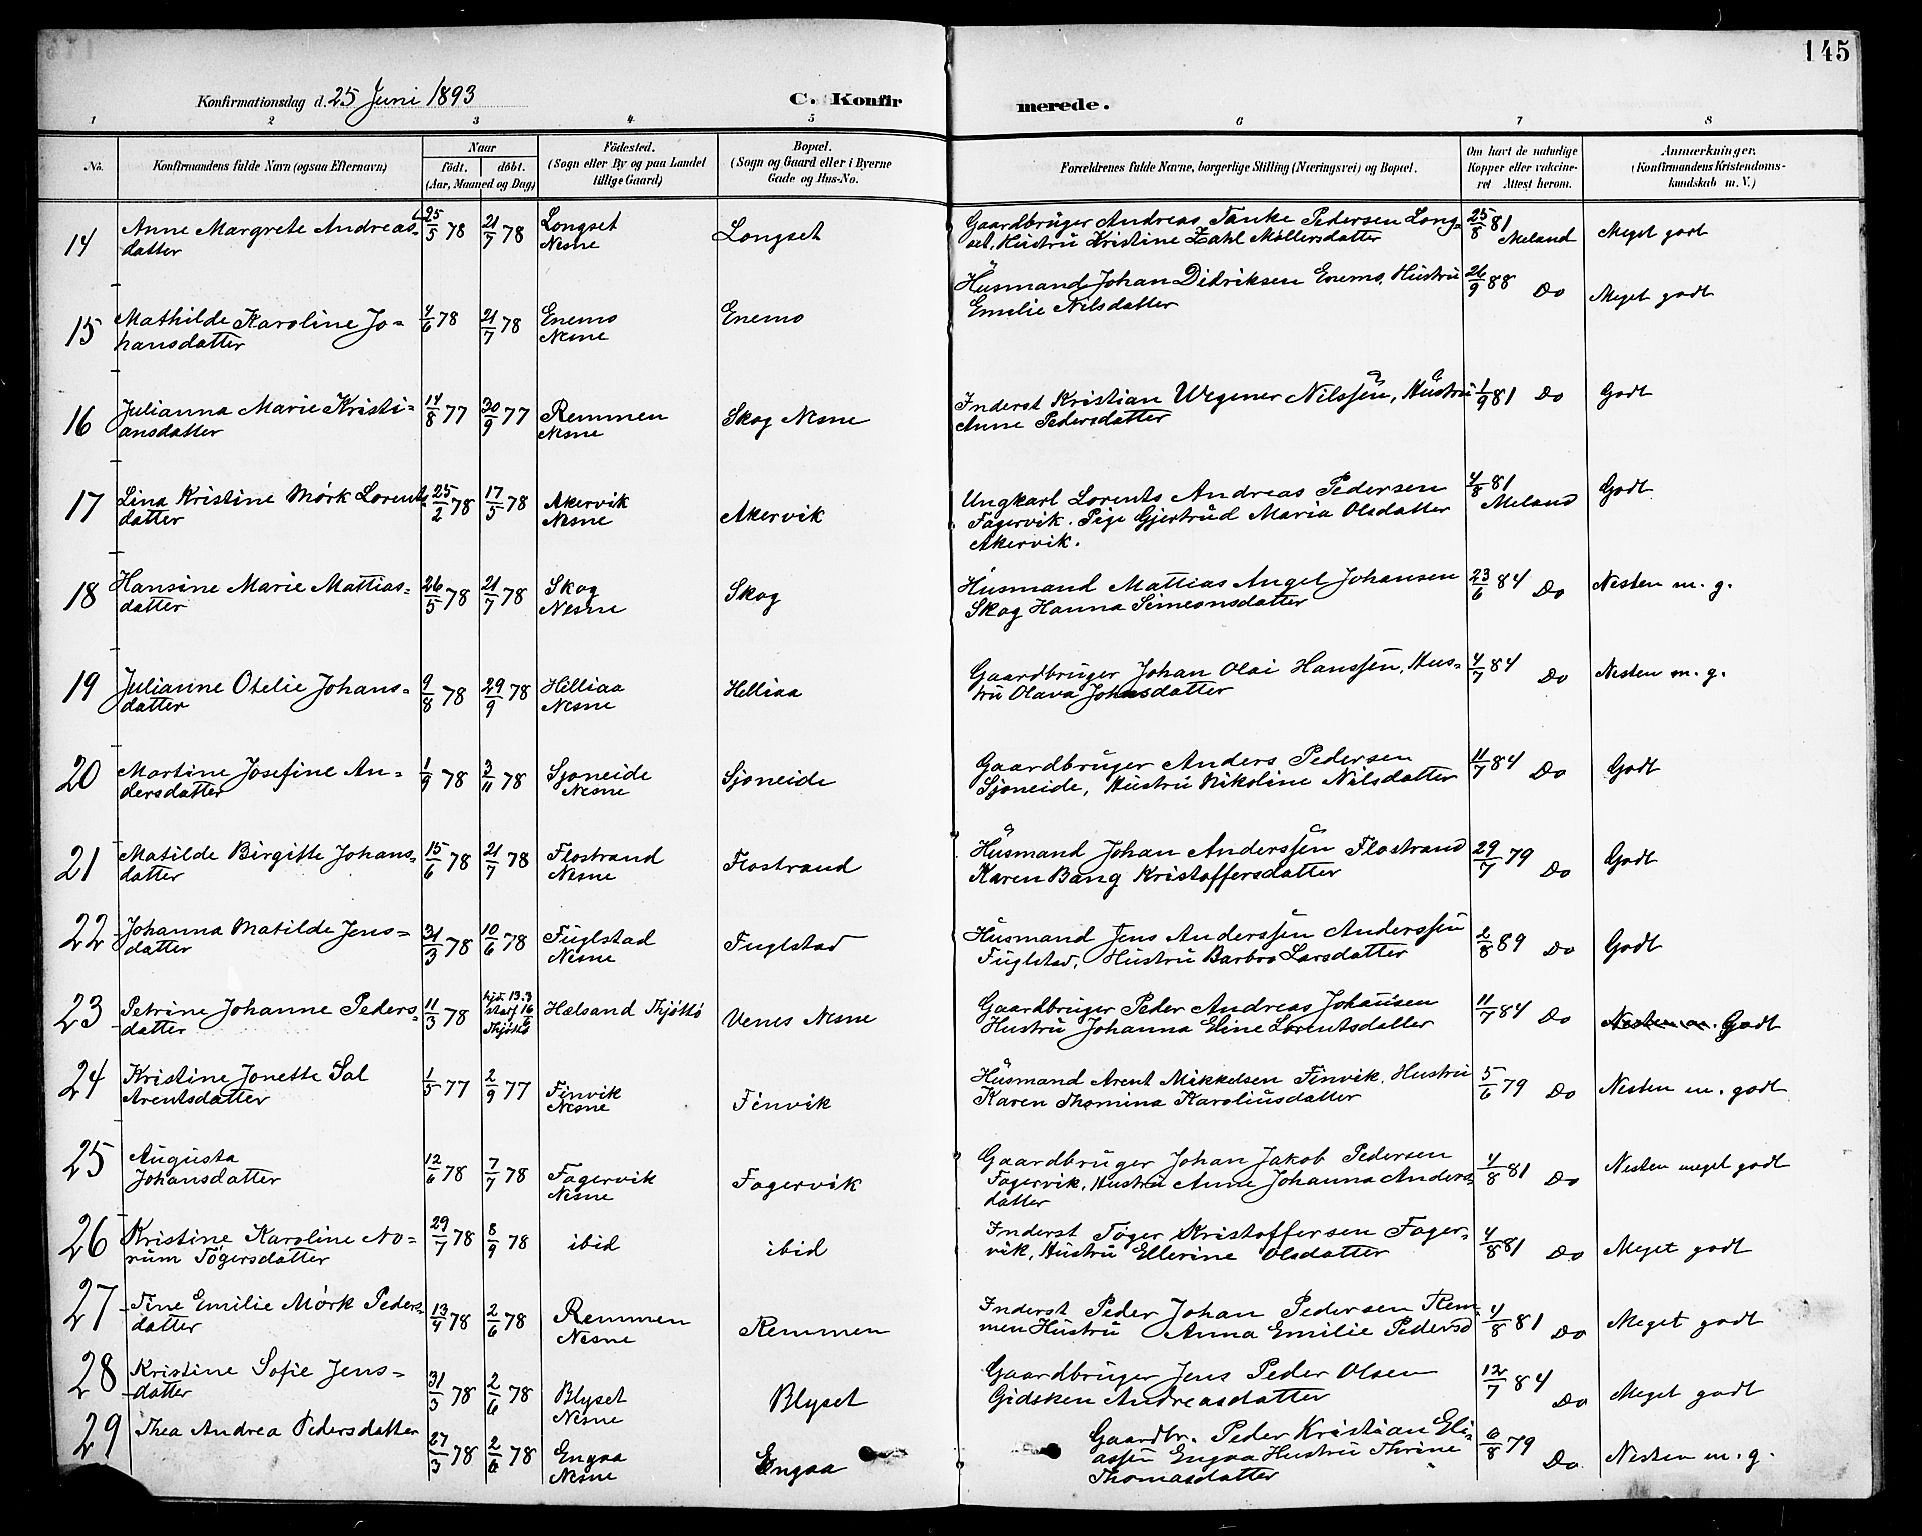 145
Konfirmationsdag d. 25 Juni 1893 C. Konfirmerede.
1 2 3 4 5 6 7 8
No. Konfirmandens fulde Navn (ogsaa Efternavn) Naar født. døbt. (Aar, Maaned og Dag) Födested. (Sogn eller By og paa Landet tillige Gaard) Bopæl. (Sogn og Gaard eller i Byerne Gade og Hus-No. Forældrenes fulde Navne, borgerlige Stilling (Næringsvei) og Bopæl. Om havt de naturlige Kopper eller vaccineret Attest herom. Anmærkninger. (Konfirmandens Kristendomskundskab m. V.)
14 Anne Margrete Andreas- 25/5 78 21/7 78 Longset Longset Gaardbruger Andreas Tanke Pedersen Long- 25/8 81 Meget godt
datter Nesne set, Hustru Kristine Zahl Møllersdatter Meland
15 Mathilde Karoline Jo- 4/6 78 21/7 78 Enemo Enemo Husmand Johan Didriksen Enemo, Hustru 26/9 88 Do Meget godt
hansdatter Nesne Emilie Nilsdatter
16 Julianna Marie Kristi- 14/8 77 30/9 77 Remmen Skog Nesne Inderst Kristian Wegener Nilssen, Hustru 1/9 81 Do Godt
ansdatter Nesne Anne Pedersdatter
17 Lina Kristine Mørk Lorents- 25/2 78 17/5 78 Akervik Akervik Ungkarl Lorents Andreas Pedersen 4/8 81 Godt
datter Nesne Fagervik. Pige Gjertrud Maria Olsdatter Meland
Akervik.
18 Hansine Marie Mattias- 26/5 78 21/7 78 Skog Skog Husmand Mattias Angel Johansen 23/6 84 Do Nesten m. g.
datter Nesne Skog Hanna Simeonsdatter
19 Julianne Otelie Johans- 9/8 78 29/9 78 Helliaa Helliaa Gaardbruger Johan Olai Hanssen, Hus- 4/7 84 Do Nesten m. g.
datter Nesne tru Olava Johnsdatter
20 Martine Josefine An- 1/9 78 3/11 78 Sjoneide Sjoneide Gaardbruger Anders Pedersen 11/7 84 Do Godt
dersdatter Nesne Sjoneide, Hustru Nikoline Nilsdatter
21 Matilde Birgitte Johans- 15/6 78 21/7 78 Flostrand Flostrand Husmand Johan Anderssen Flostrand 29/7 79 Do Godt
datter Nesne Karen Bang Kristoffersdatter
22 Johanna Matilde Jens- 31/3 78 10/6 78 Fuglstad Fuglstad Husmand Jens Anderssen Anderssen 2/8 89 Do Godt
datter Nesne Fuglstad, Hustru Barbro Larsdatter
23 Petrine Johanne Peders- 11/3 78 hjd. 13.3 Hælsand Thjøttø Venes Nesne Gaardbruger Peder Andreas Johansen 11/7 84 Do Nesten m. Godt
datter Thjøttø Hustru Johanna Eline Lorentsdatter
24 Kristine Jonette Sal 1/5 77 2/9 77 Finvik Finvik Husmand Arent Mikkelsen Finvik, Hustru 5/6 79 Do Nesten m. godt
Arentsdatter Nesne Karen Thomina Karoliusdatter
25 Augusta 12/6 78 7/7 78 Fagervik Fagervik Gaardbruger Johan Jakob Pedersen 4/8 81 Do Nesten meget godt
Johansdatter Nesne Fagervik, Hustru Anne Johanna Anders-
datter
26 Kristine Karoline No- 29/7 78 8/9 78 ibid ibid Inderst Tøger Kristoffersen Fager- 4/8 81 Do Meget godt
rum Tøgersdatter vik, Hustru Ellerine Olsdatter
27 Tine Emilie Mørk Peders- 13/4 78 2/6 78 Remmen Remmen Inderst Peder Johan Pedersen Rem- 4/8 81 Do Meget godt
datter Nesne men Hustru Anna Emilie Pedersd
28 Kristine Sofie Jens- 31/3 78 2/6 78 Blyset Blyset Gaardbruger Jens Peder Olsen 12/7 84 Do Meget godt
datter Nesne Gidsken Andreasdatter
29 Thea Andrea Pedersdatter 27/3 78 2/6 78 Engaa Engaa Gaardbr. Peder Kristian Eli- 6/8 79 Do Nesten m. g.
Nesne assen Engaa Hustru Thrine
Thomasdatter